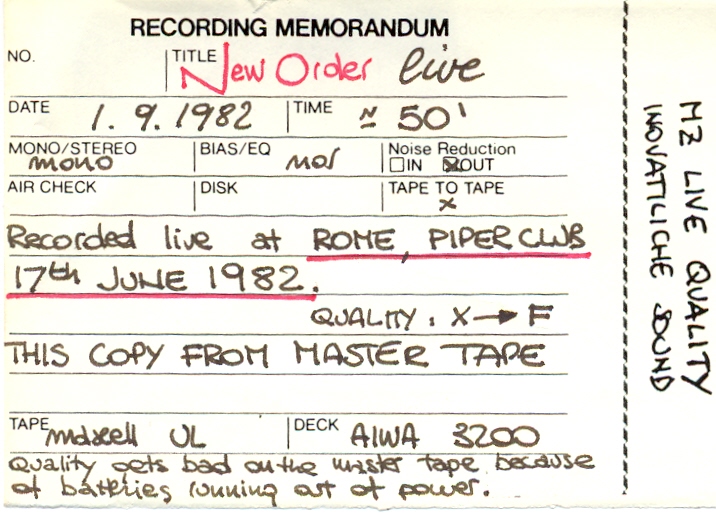 RECORDING MEMORANDUM
NO. TITLE New Order live
DATE 1.9.1982 TIME ≈ 50'
MONO/STEREO mono BIAS/EQ nor Noise Reduction ☐IN ☒OUT
AIR CHECK DISK TAPE TO TAPE x
Recorded live at ROME, PIPER CLUB
17th JUNE 1982.
QUALITY: X → F
THIS COPY FROM MASTER TAPE
TAPE maxell UL DECK AIWA 3200
Quality gets bad on the master tape because
of batteries running out of power.
MZ LIVE QUALITY
INOVATILICHE SOUND